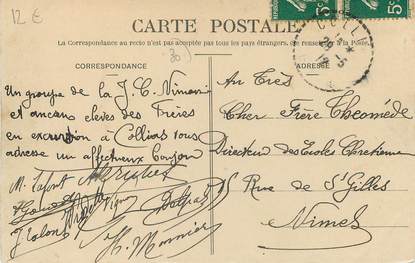 12 €
5c
5c
CARTE POSTALE
La Correspondance au recto n'est pas acceptée par tous les pays étrangers.
(30)
CORRESPONDANCE
ADRESSE
Un groupe de la J. C.
et anciens élèves des Frères
en excursion à Collias vous
adresse un affectueux bonjour
M. Lafont
J. Colons
H. Monnier
Au Très
Cher Frère Théomède
Directeur des Ecoles Chretienne
15 Rue de St Gilles
Nimes